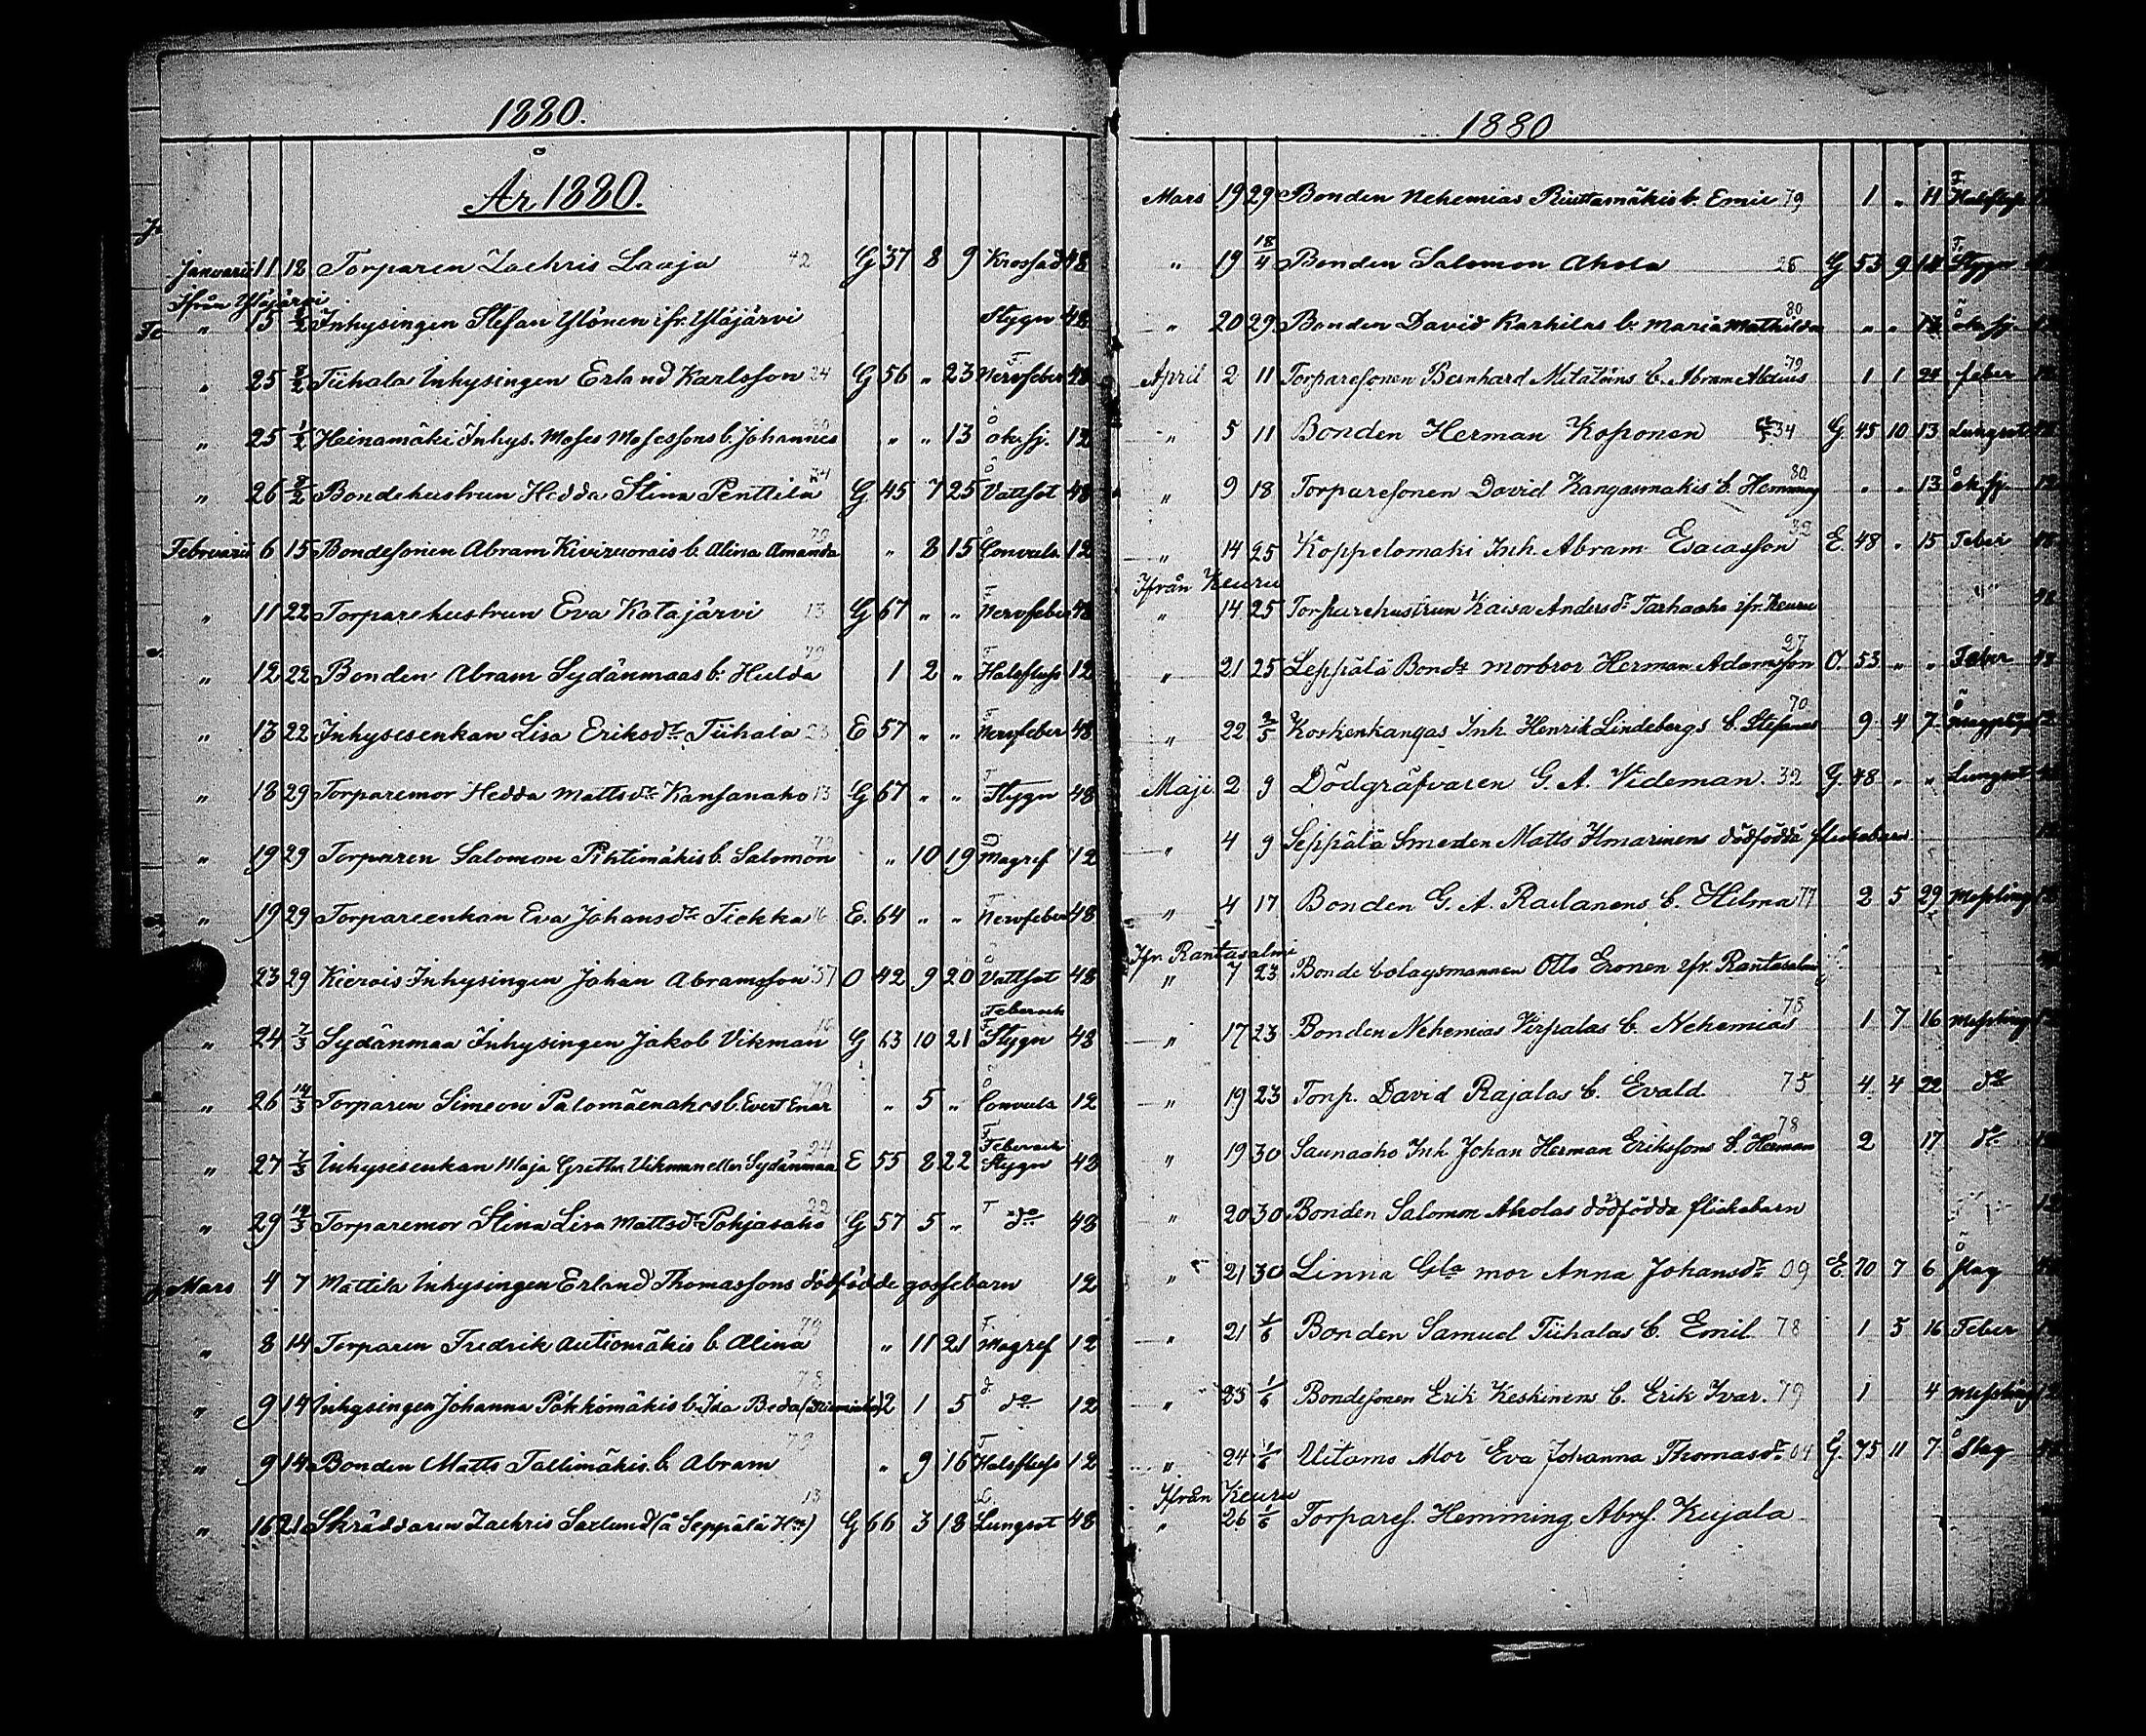 1880.
År 1880.
Januarii 11 18 Torparen Zachris Laaja 42 G 37 8 9 Krossad 48
Ifrån Ylöjärvi
" 15 8/2 Inhysingen Stefan Ylönen ifr. Ylöjärvi Stygn 48
" 25 8/2 Tiihala Inhysingen Erland Karlsson 24 G 56 " 23 F Nervfeber 48
" 25 1/2 Heinämäki Inhys. Moses Mosessons b. Johannes 80 " " 13 å ok. sj. 12
" 26 8/2 Bondehustrun Hedda Stina Penttilä 34 G 45 7 25 Å Vattsot 48
Februarii 6 15 Bondesonen Abram Kiviruorais b. Alina Amanda 79 " 8 15 Å Convuls. 12
" 11 22 Torparehustrun Eva Katajärvi 13 G 67 " " F Nervfeber 48
" 12 22 Bonden Abram Sydänmaas b. Hulda 79 1 2 " F Halsfluss 12
" 13 22 Inhysesenkan Lisa Eriksdr Tiihala 23 E 57 " " F Nervfeber 48
" 18 29 Torparemor Hedda Mattsdr Kansanaho 13 G 67 " " F Stygn 48
" 19 29 Torparen Salomon Pihtimäkis b. Salomon 79 " 10 19 O Magref 12
" 19 29 Torpareenkan Eva Johansdr Tiekka 16 E. 64 " " F Nervfeber 48
23 29 Kierois Inhysingen Johan Abramsson 37 O 42 9 20 å Vattsot 48
" 24 7/3 Sydänmaa Inhysingen Jakob Vikman 16 G 63 10 21 Feber och F Stygn 48
" 26 14/3 Torparen Simeon Palomäenahos b. Evert Enar 79 " 5 " Å Convuls 12
" 27 7/3 Inhysesenkan Maja Gretha Vikman eller Sydänmaa 24 E 55 8 22 F Feber och Stygn 48
" 29 14/3 Torparemor Stina Lisa Mattsdr Pohjasaho 22 G 57 5 " F do 48
Mars 4 7 Mattila Inhysingen Erland Thomassons dödfödde gossebarn 12
" 8 14 Torparen Fredrik Autiomäkis b. Alina 79 " 11 21 F. Magref 12
" 9 14 Inhysingen Johanna Pökkömäkis b. Ida Beda 78 2 1 5 do 12
" 9 14 Bonden Matts Tallimäkis b. Abram 79 " 9 16 F Halsfluss 12
" 16 21 Skräddaren Zachris Saxlund (å Seppälä Hm) 13 G 66 3 18 L. Lungsot 48
1880
Mars 19 29 Bonden Nehemias Riuttamäkis b. Emil 79 1 " 11 F. Halsfluss
" 19 18/4 Bonden Salomon Ahola 26 G 53 9 F. Stygn
" 20 29 Bonden David Karhilas b. Maria Mathilda 80 " " 12 å ok. sj.
April 2 11 Torparesonen Bernhard Mitätöins b. Abram 79 1 1 24 feber
" 5 11 Bonden Herman Koponen 34 G. 45 10 13 Lungsot
" 9 18 Torparesonen David Kangasmakis b. Hemming 80 " " 13 Å ok. sj.
" 14 25 Koppelomaki Inh. Abram Esaiasson 32 E. 48 " 15 Feber
Ifrån Keuru
" 14 25 Torparehustrun Kaisa Andersdr Tarhaaho ifr. Keuru
" 21 25 Leppälä Bonds morbror Herman Adamsson 27 O. 53 " " Feber
" 22 2/5 Koskenkangas Inh. Henrik Lindebergs b. Stefanus 70 9 4 7
Maji 2 9 Dödgräfvaren G. A. Videman. 32 G. 48 " " Lungsot
" 4 9 Seppälä Smeden Matts Ilmarinens dödfödda flickebarn
" 4 17 Bonden G. A. Rautanens b. Hilma 77 2 5 29 Messling
Ifr. Rantasalmi
" 7 23 Bonde bolagsmannen Otto Eronen ifr. Rantasalmi
" 17 23 Bonden Nehemias Virpalas b. Nehemias 78 1 7 16 Messling
" 19 23 Torp. David Rajalas b. Evald 75 4 4 22 do
" 19 30 Saunaaho Inh Johan Herman Erikssons b. Herman 78 2 17 do
" 20 30 Bonden Salomon Aholas dödfödda flickebarn
" 21 30 Linna Gla mor Anna Johansdr 09 E. 70 7 6 å slag
" 21 1/6 Bonden Samuel Tiihalas b. Emil 78 1 5 16 Feber
" 23 1/6 Bondesonen Erik Keskinens b. Erik Ivar. 79 1 4 Messling
" 24 1/6 Uitamo Mor Eva Johanna Thomasdr 04 G. 75 11 7 å Slag
Ifrån Keuru
" 26 1/6 Torpares. Hemming Abrs. Kujala